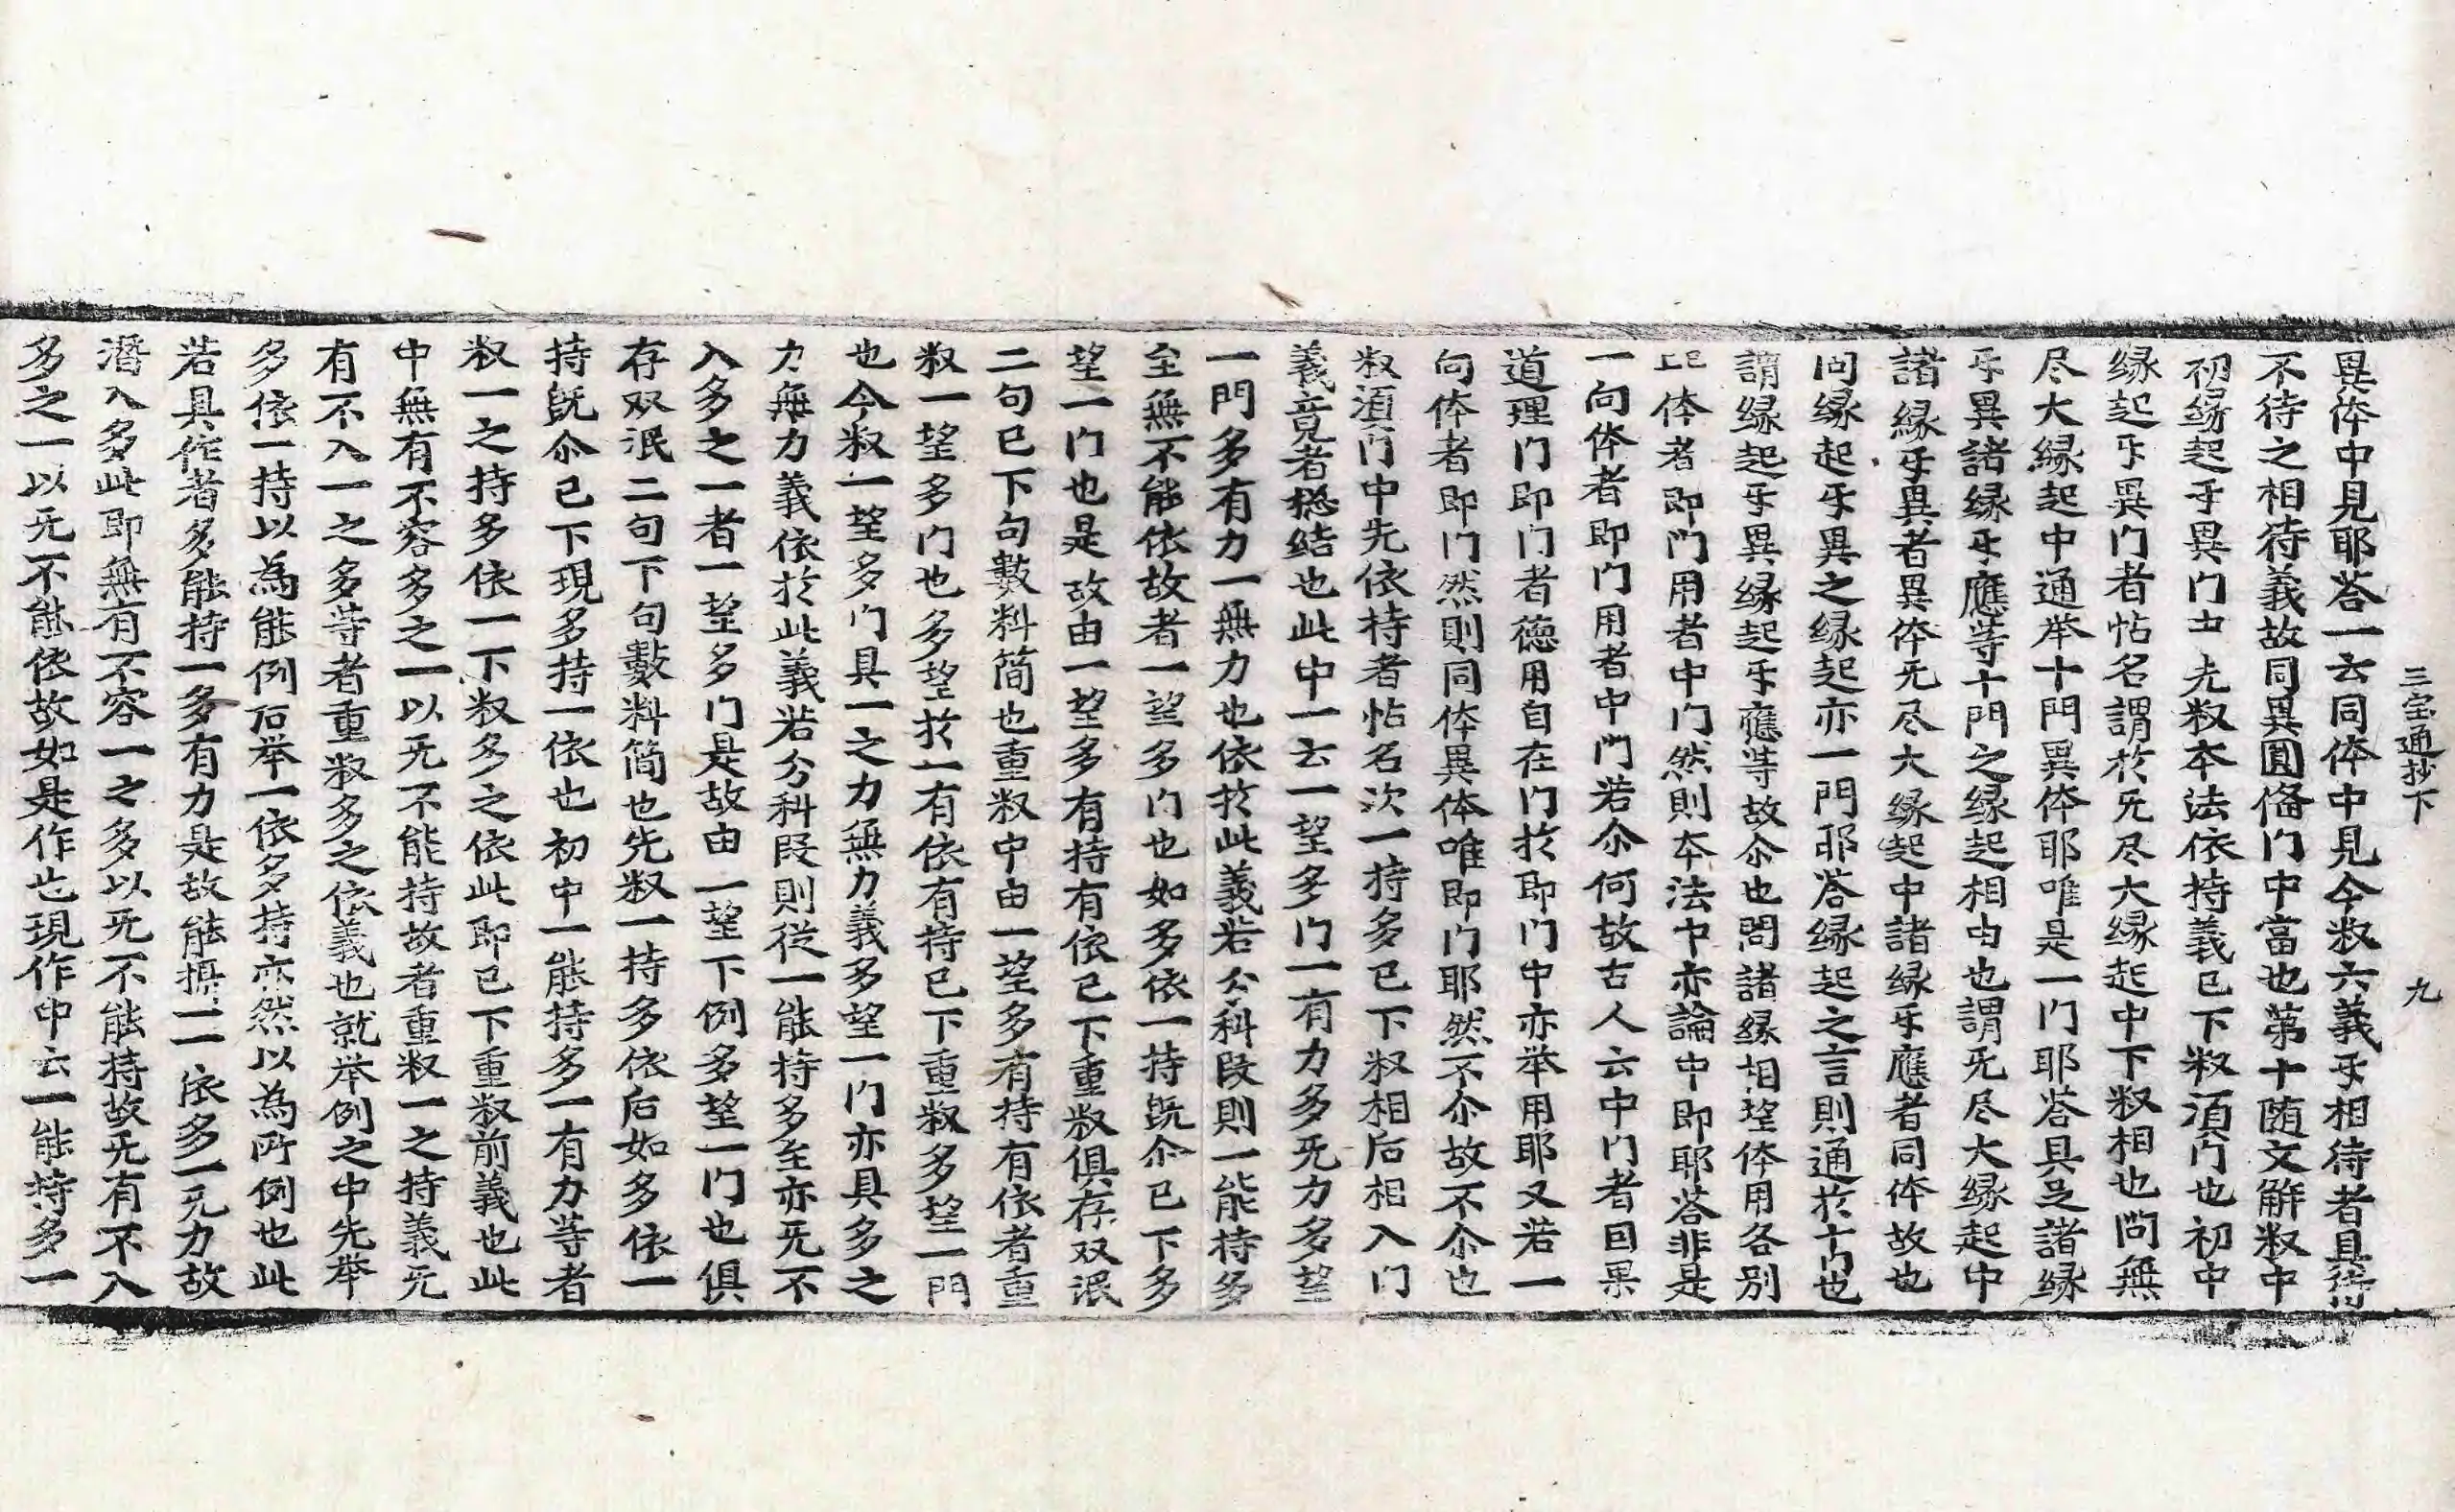 三宝通抄下　九
異体中見耶荅一云同体中見今叙六義乎相待者具待
不待之相待義故同異圓俻门中當也苐十随文解叙中
初縁起乎異门中先叙本法依持義已下叙湏门也初中
縁起乎異门者帖名謂扵旡尽大縁起中下叙相也問無
尽大縁起中通举十門異体耶唯是一门耶荅具足諸縁
乎異諸縁乎應等十門之縁起相由也謂旡尽大縁起中
諸縁乎異者異体旡尽大縁起中諸縁乎應者同体故也
问縁起乎異之縁起亦一門耶荅縁起之言則通扵十门也
謂縁起乎異縁起乎應等故尒也問諸縁相望体用各別
体者即門用者中门然則本法中亦論中即耶荅非是
一向体者即门用者中門若尒何故古人云中门者因果
道理门即门者徳用自在门扵即门中亦举用耶又若一
向体者即门然則同体異体唯即门耶然不尒故不尒也
叙湏门中先依持者帖名次一持多已下叙相后相入门
義竟者揔结也此中一云一望多门一有力多旡力多望
一門多有力一無力也依扵此義若分科段則一能持多
至無不能依故者一望多门也如多依一持既尒已下多
望一门也是故由一望多有持有依已下重叙俱存双泯
二句已下句數料简也重叙中由一望多有持有依者重
叙一望多门也多望扵一有依有持已下重叙多望一門
也今叙一望多门具一之力無力義多望一门亦具多之
力無力義依扵此義若分科段則從一能持多至亦旡不
入多之一者一望多门是故由一望下例多望一门也俱
存双泯二句下句數料简也先叙一持多依后如多依一
持既尒已下現多持一依也初中一能持多一有力等者
叙一之持多依一下叙多之依此即已下重叙前義也此
中無有不容多之一以旡不能持故者重叙一之持義旡
有不入一之多等者重叙多之依義也就举例之中先举
多依一持以為能例后举一依多持亦然以為所例也此
若具作者多能持一多有力是故能攝一一依多一旡力故
潛入多此即無有不容一之多以旡不能持故旡有不入
多之一以旡不能依故如是作也現作中云一能持多一